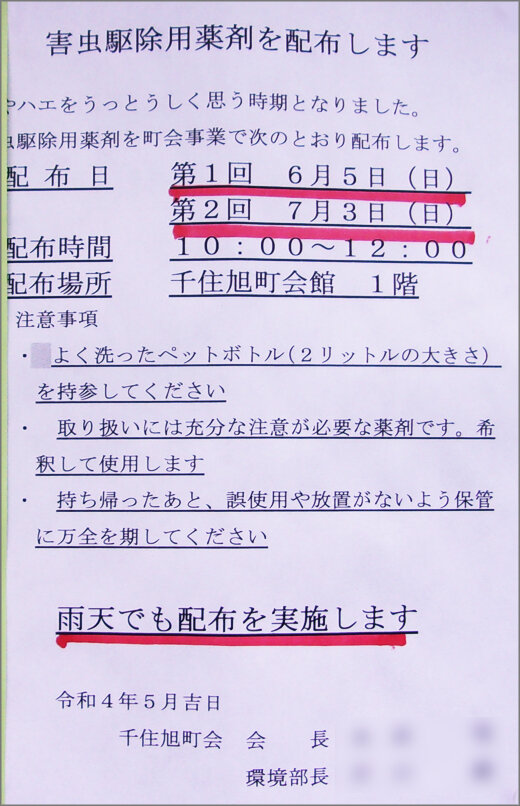 害虫駆除用薬剤を配布します
やハエをうっとうしく思う時期となりました。
虫駆除用薬剤を町会事業で次のとおり配布します。
配布日　第１回　６月５日（日）
第２回　７月３日（日）
配布時間　１０：００～１２：００
配布場所　千住旭町会館　１階
注意事項
・　よく洗ったペットボトル（２リットルの大きさ）
を持参してください
・　取り扱いには充分な注意が必要な薬剤です。希
釈して使用します
・　持ち帰ったあと、誤使用や放置がないよう保管
に万全を期してください
雨天でも配布を実施します
令和４年５月吉日
千住旭町会　会　長
環境部長